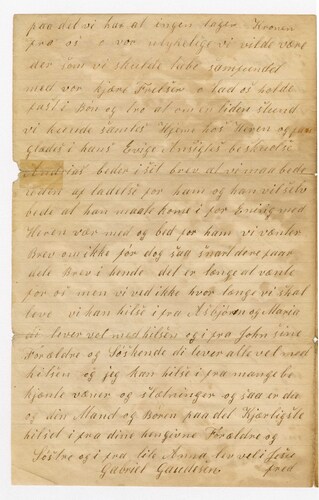 paa det vi har at ingen tager Kronen
fra os o vor ulykelige vi vilde være
der som vi skulde tabe samfundet
med vor kjære Frelser o lad os holde
fast i Bøn og tro at om en liden stund
vi herede samles Hjeme hos Heren og
glædes i hans Evige Ansigtes beskuelse
Andrias beder i sit brev at vi maa bede
Heden af ladelse for ham og han vil selv
bede at han maate kome i for Enidig med
Heren vær med og bed for ham vi vænter
Brev om ikke før dog saa snart dere faar
dete Brev i hende det er lange at vænte
for os men vi ved ikke hvor længe vi skal
leve vi kan hilse fra Asbjören og Maria
de lever vel med hilsen og i fra John sine
Forældre og Søskende di lever alle vel med
hilsen og jeg kan hilse i fra mange be
kjente væner og slætninger og saa er da
og din Mand og Boren paa det Kjærligste
hilset i fra dine hengivne Forældre og
Søstre og i fra lile Anna lev vel i
Gabriel Gaudesen fred